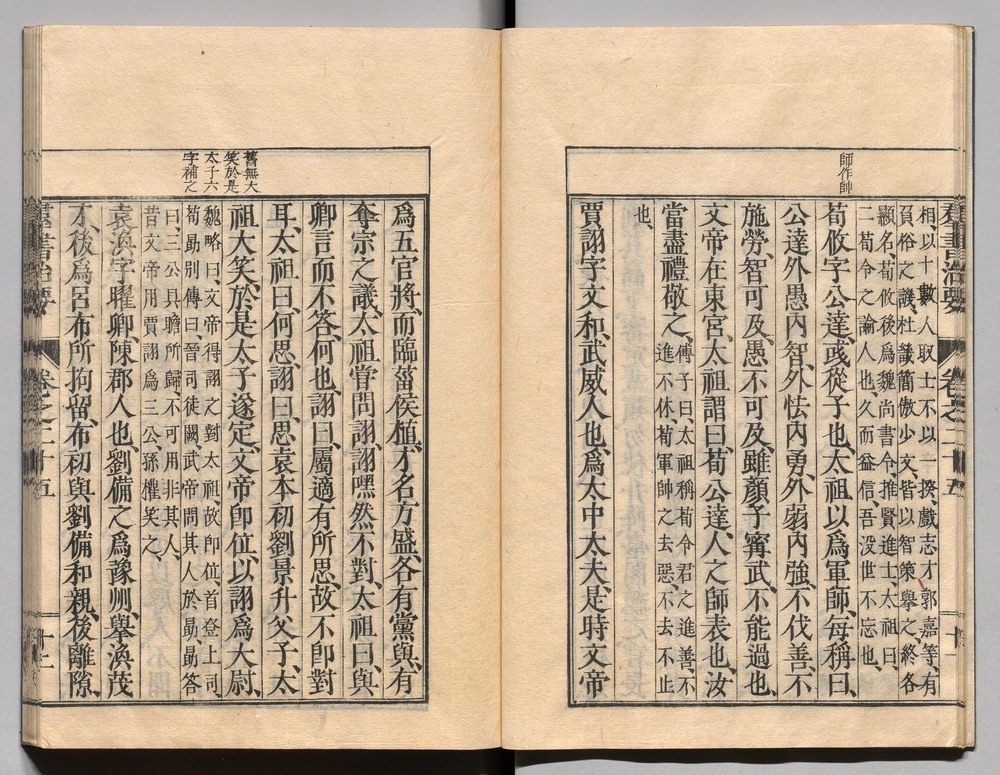 師作帥
相、以十數人、取士不以一揆、戲志才、郭嘉等、有
負俗之譏、杜畿簡傲少文、皆以智策舉之、終各
顯名、荀攸後爲魏尚書令、推賢進士、太祖曰、
二荀令之論人也、久而益信、吾没世不忘也、
荀攸字公達、彧從子也、太祖以爲軍師、每稱曰、
公達外愚內智、外怯內勇、外弱內強、不伐善、不
施勞、智可及、愚不可及、雖顏子甯武、不能過也、
文帝在東宮、太祖謂曰、荀公達、人之師表也、汝
當盡禮敬之、傅子曰、太祖稱荀令君之進善、不
進不休、荀軍師之去惡、不去不止
也、
賈詡字文和、武威人也、爲太中大夫、是時文帝
群書治要 卷之二十五 十一
舊無大
笑於是
太子六
字補之
爲五官將、而臨菑侯植、才名方盛、各有黨與、有
奪宗之議、太祖嘗問詡、詡嘿然不對、太祖曰、與
卿言而不答、何也、詡曰、屬適有所思、故不卽對
耳、太祖曰、何思、詡曰、思袁本初劉景升父子、太
祖大笑、於是太子遂定、文帝卽位、以詡爲大尉、
魏略曰、文帝得詡之對太祖、故卽位、首登上司、
荀勗別傳曰、晉司徒闕、武帝問其人於勗、勗答
曰、三公具瞻所歸、不可用非其人、
昔文帝用賈詡爲三公、孫權笑之、
袁渙字曜卿、陳郡人也、劉備之爲豫州、舉渙茂
才、後爲呂布所拘留、布初與劉備和親、後離隙、
群書治要 卷之二十五 十二